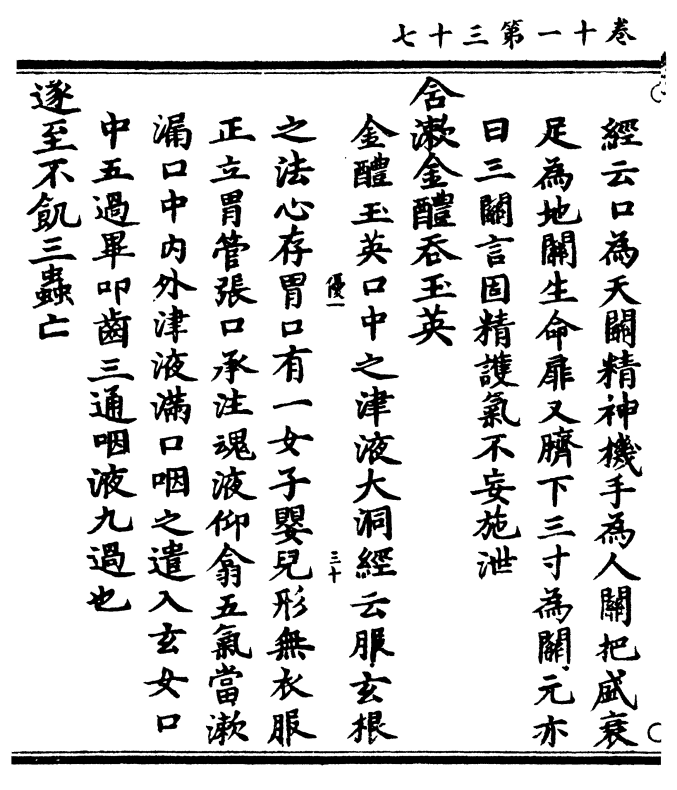 卷十一第三十七
經云口為天關精神機手為人關把盛衰
足為地關生命扉又臍下三寸為關元亦
曰三關言固精護氣不妄施泄
含漱金醴吞玉英
金醴玉英口中之津液大洞經云服玄根
優一
三十
之法心存胃口有一女子嬰兒形無衣服
正立胃管張口承注魂液仰翕五氣當漱
漏口中内外津液滿口咽之遣入玄女口
中五過畢叩齒三通咽液九過也
遂至不飢三蟲亡